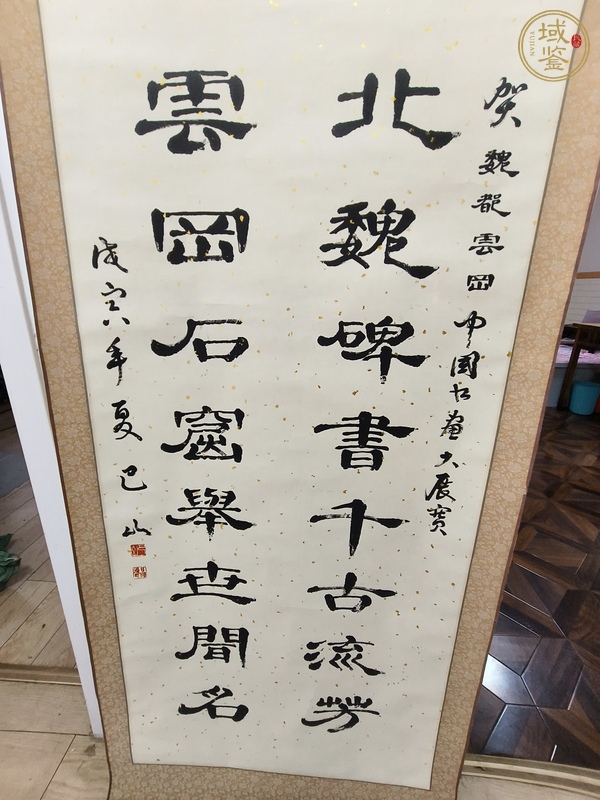 贺魏都雲岡中国书画大展宝
北魏碑書千古流芳
雲岡石窟舉世聞名
戊寅年夏巴山
域鉴
YUJIAN